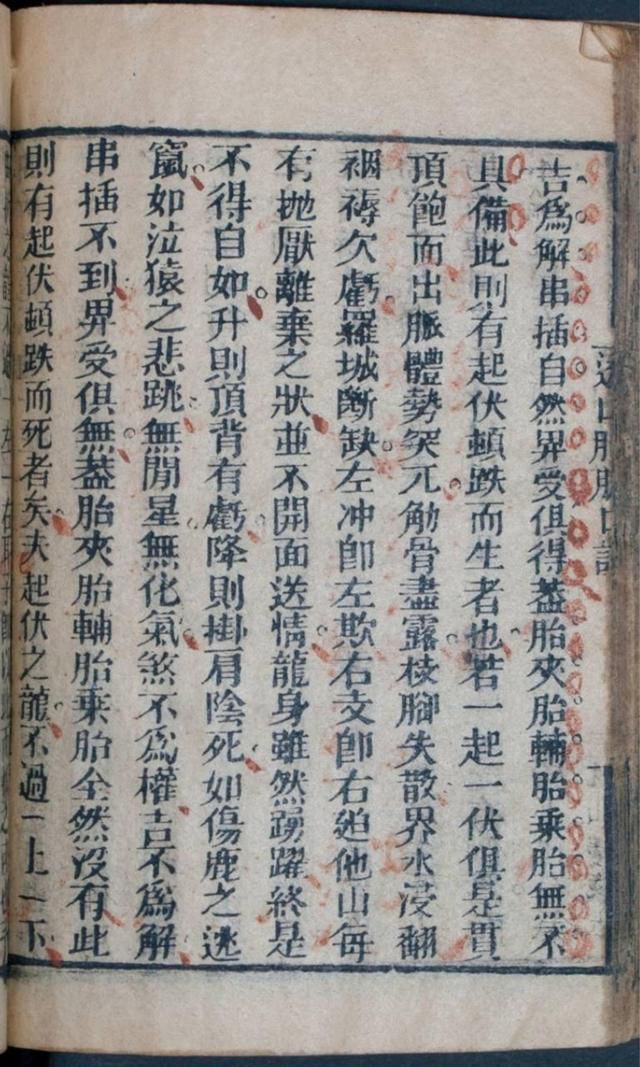 吉爲解串插自然界受俱得葢胎夾胎輔胎乗胎無不
具備此則有起伏頓跌而生者也若一起一伏俱是貫
頂飽而出脈體勢突兀觔骨盡露枝腳失散界水浸翻
裀褥欠虧羅城斷缺左冲卽左欺右支卽右迫他山每
有抛厭離棄之狀並不開面送情龍身雖然踴躍終是
不得自如升則頂背有虧降則掛肩陰死如傷鹿之逃
竄如泣猿之悲跳無閒星無化氣煞不爲權吉不爲解
串插不到界受俱無葢胎夾胎輔胎乗胎全然沒有此
則有起伏頓跌而死者矣夫起伏之龍不過一上一下